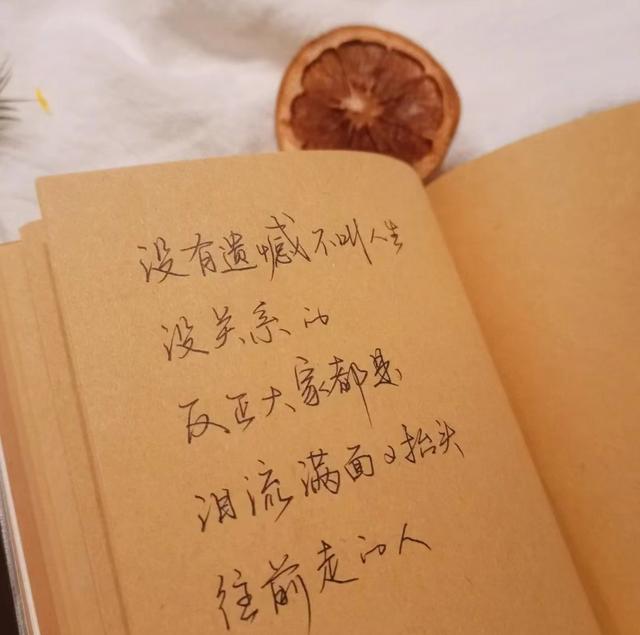 没有遗憾不叫人生
没关系的
反正大家都是
泪流满面又抬头
往前走的人